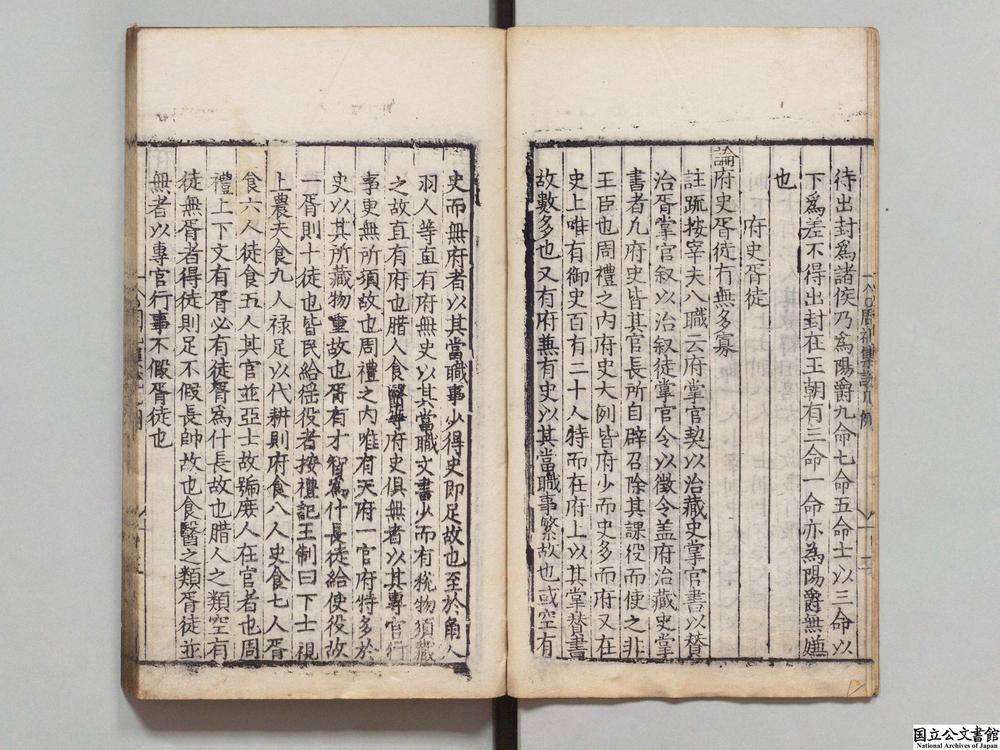 待出封爲諸侯乃爲陽爵九命七命五命士以三命以
下爲差不得出封在王朝有三命一命亦為陽爵無嫌
也
府史胥徒
論府史胥徒有無多寡
註疏按宰夫八職云府掌官契以治藏史掌官書以賛
治胥掌官叙以治叙徒掌官令以徵令盖府治藏史掌
書者凡府史皆其官長所自辟召除其課役而使之非
王臣也周禮之内府史大例皆府少而史多而府又在
史上唯有御史百有二十人特而在府上以其掌賛書
故數多也又有府兼有史以其當職事繁故也或空有
史而無府者以其當職事少得史即足故也至於角人
羽人等直有府無史以其當職文書少而有稅物須藏
之故直有府也腊人食醫等府史俱無者以其專官行
事更無所須故也周禮之内唯有天府一官府特多於
史以其所藏物重故也胥有才智為什長徒給使役故
一胥則十徒也皆民給徭役者按禮記王制曰下士視
上農夫食九人禄足以代耕則府食八人史食七人胥
食六人徒食五人其官並亞士故號庻人在官者也周
禮上下文有胥必有徒胥為什長故也腊人之類空有
徒無胥者得徒則足不假長帥故也食醫之類胥徒並
無者以專官行事不假胥徒也
国立公文書館
National Archives of Japan